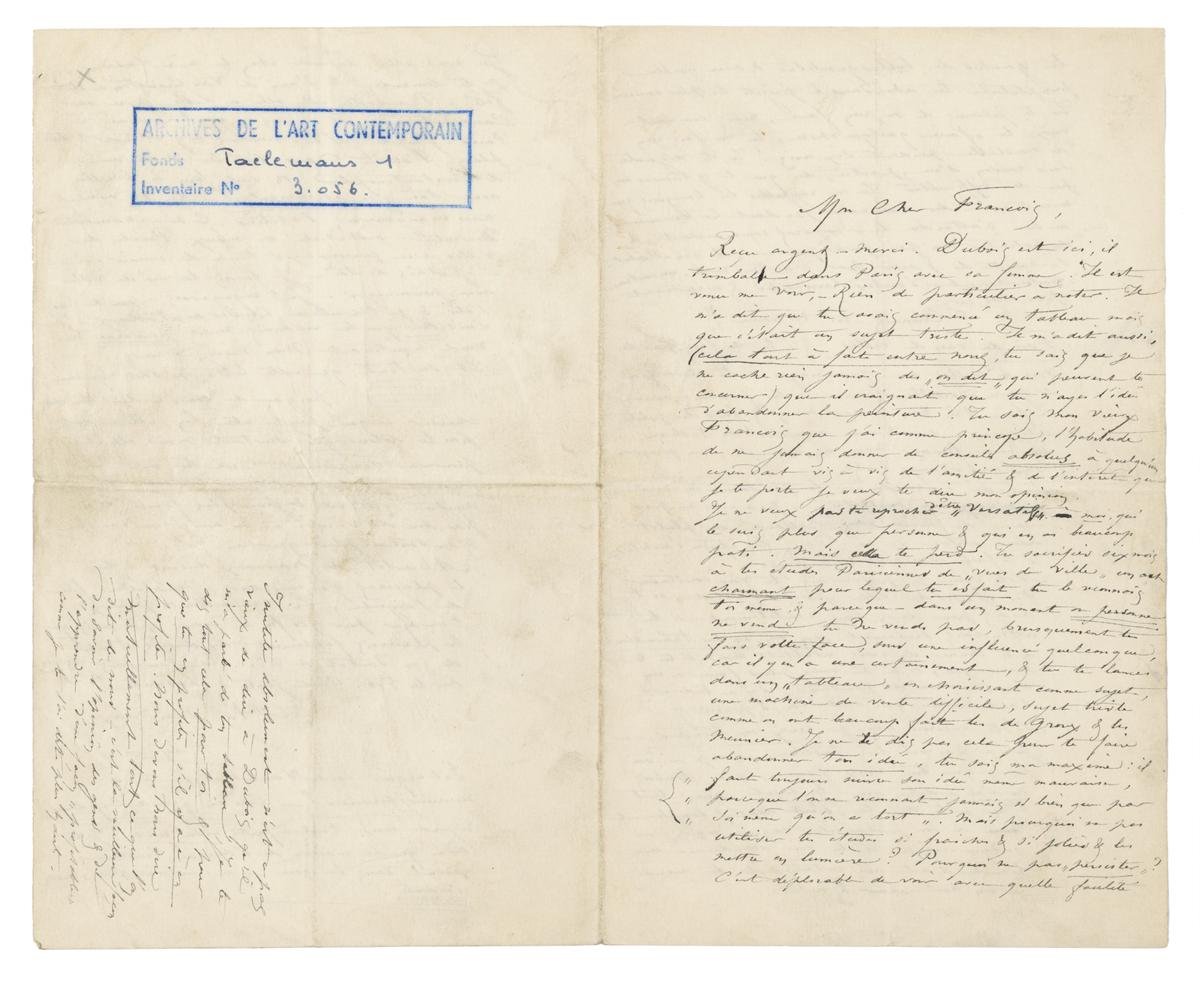 ARCHIVES DE L'ART CONTEMPORAIN
Fonds Taelemans 1
Inventaire N° 3.056.
Mon Cher François,
Recu argent – merci. Dubois est ici, il
trimballe dans Paris avec sa femme. Il est
venu me voir, – Rien de particulier à noter. Il
m'a dit que tu avais commencé un tableau mais
que c'était un sujet triste. Il m'a dit aussi,
(cela tout à fait entre nous, tu sais que je
ne cache rien jamais des „on dit„ qui peuvent te
concerner) que il craignait que tu n'ayes l'idée
d'abandonner la peinture. Tu sais mon vieux
François que j'ai comme principe, l'habitude
de ne jamais donner de conseils absolus à quelqu'un
cependant vis à vis de l'amitié & de l'intérêt que
je te porte je veux te dire mon opinion.
Je ne veux pas te reprocher d'être „versatil„ – moi qui
le suis plus que personne & qui en ai beaucoup
pati. Mais cela te perd. Tu sacrifies six mois
à tes études Parisiennes de „vues de ville„ un art
charmant pour lequel tu es fait tu le reconnais
toi même, & parceque – dans un moment où personne
ne vend tu ne vends pas, brusquement tu
fais volte face, sous une influence quelconque,
car il y en a une certainement, & tu te lances
dans un „tableau„ en choisissant comme sujet,
une machine de vente difficile, sujet triste
comme en ont beaucoup fait les de Groux & les
Meunier. Je ne te dis pas cela pour te faire
abandonner ton idée, tu sais ma maxime: il
„ faut toujours suivre son idée même mauvaise,
„ parceque l'on ne reconnait jamais si bien que par
„ soi même qu'on a tort„. Mais pourquoi ne pas
utiliser tes études si fraiches & si jolies & les
mettre en lumière? Pourquoi ne pas „persister„?
C'est déplorable de voir avec quelle facilité
Inutile absolument n'est-ce pas
vieux de dire à Dubois qu'il
m'a parlé de ton tableau, je te
dis tout cela pour toi & pour
que tu en profites s'il y a à en
profiter. Nous devons nous dire
mutuellement tout ce que l'on
dit de nous – c'est le meilleur
de savoir l'opinion des gens & de
l'apprendre d'une façon profitable
comme je te l'ai dit plus haut.